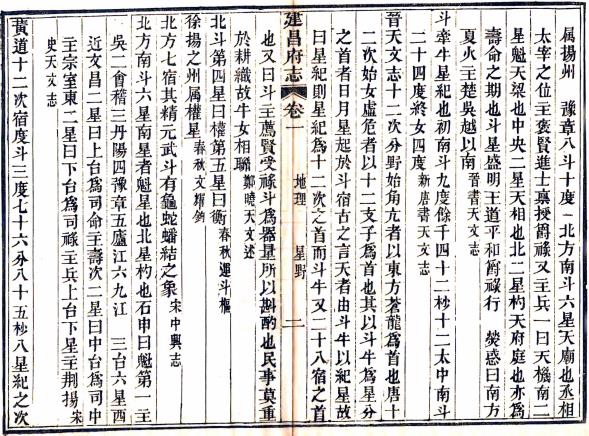 属揚州 豫章入斗十度 北方南斗六星天廟也丞相
太宰之位主褒賢進士稟授爵祿又主兵一曰天機南二
星魁天梁也中央二星天相也北二星杓天府庭也亦爲
壽命之期也斗星盛明王道平和爵祿行 熒惑曰南方
夏火主楚吳越以南 晉書天文志
斗牽牛星紀也初南斗九度餘千四十二秒十二太中南斗
二十四度終女四度 新唐書天文志
晉天文志十二次分野始角亢者以東方蒼龍爲首也唐十
二次始女虛危者以十二支子爲首也其以斗牛爲星分
之首者日月星起於斗宿古之言天者由斗牛以紀星故
曰星紀則星紀爲十二次之首而斗牛又二十八宿之首
建昌府志 卷一 地理 星野 二
也又曰斗主薦賢受祿斗爲器量所以斟酌也民事莫重
於耕織故牛女相聯 鄭曉天文述
北斗第四星曰權第五星曰衡 春秋運斗樞
徐揚之州属權星 春秋文耀鉤
北方七宿其精元武斗有龜蛇蟠結之象 宋中興志
北方南斗六星南星者魁星也北星杓也石申曰魁第一主
吳二會稽三丹陽四豫章五廬江六九江 三台六星西
近文昌二星曰上台爲司命主壽次二星曰中台爲司中
主宗室東二星曰下台爲司祿主兵上台下星主荆揚 宋
史天文志
黃道十二次宿度斗三度七十六分八十五秒八星紀之次